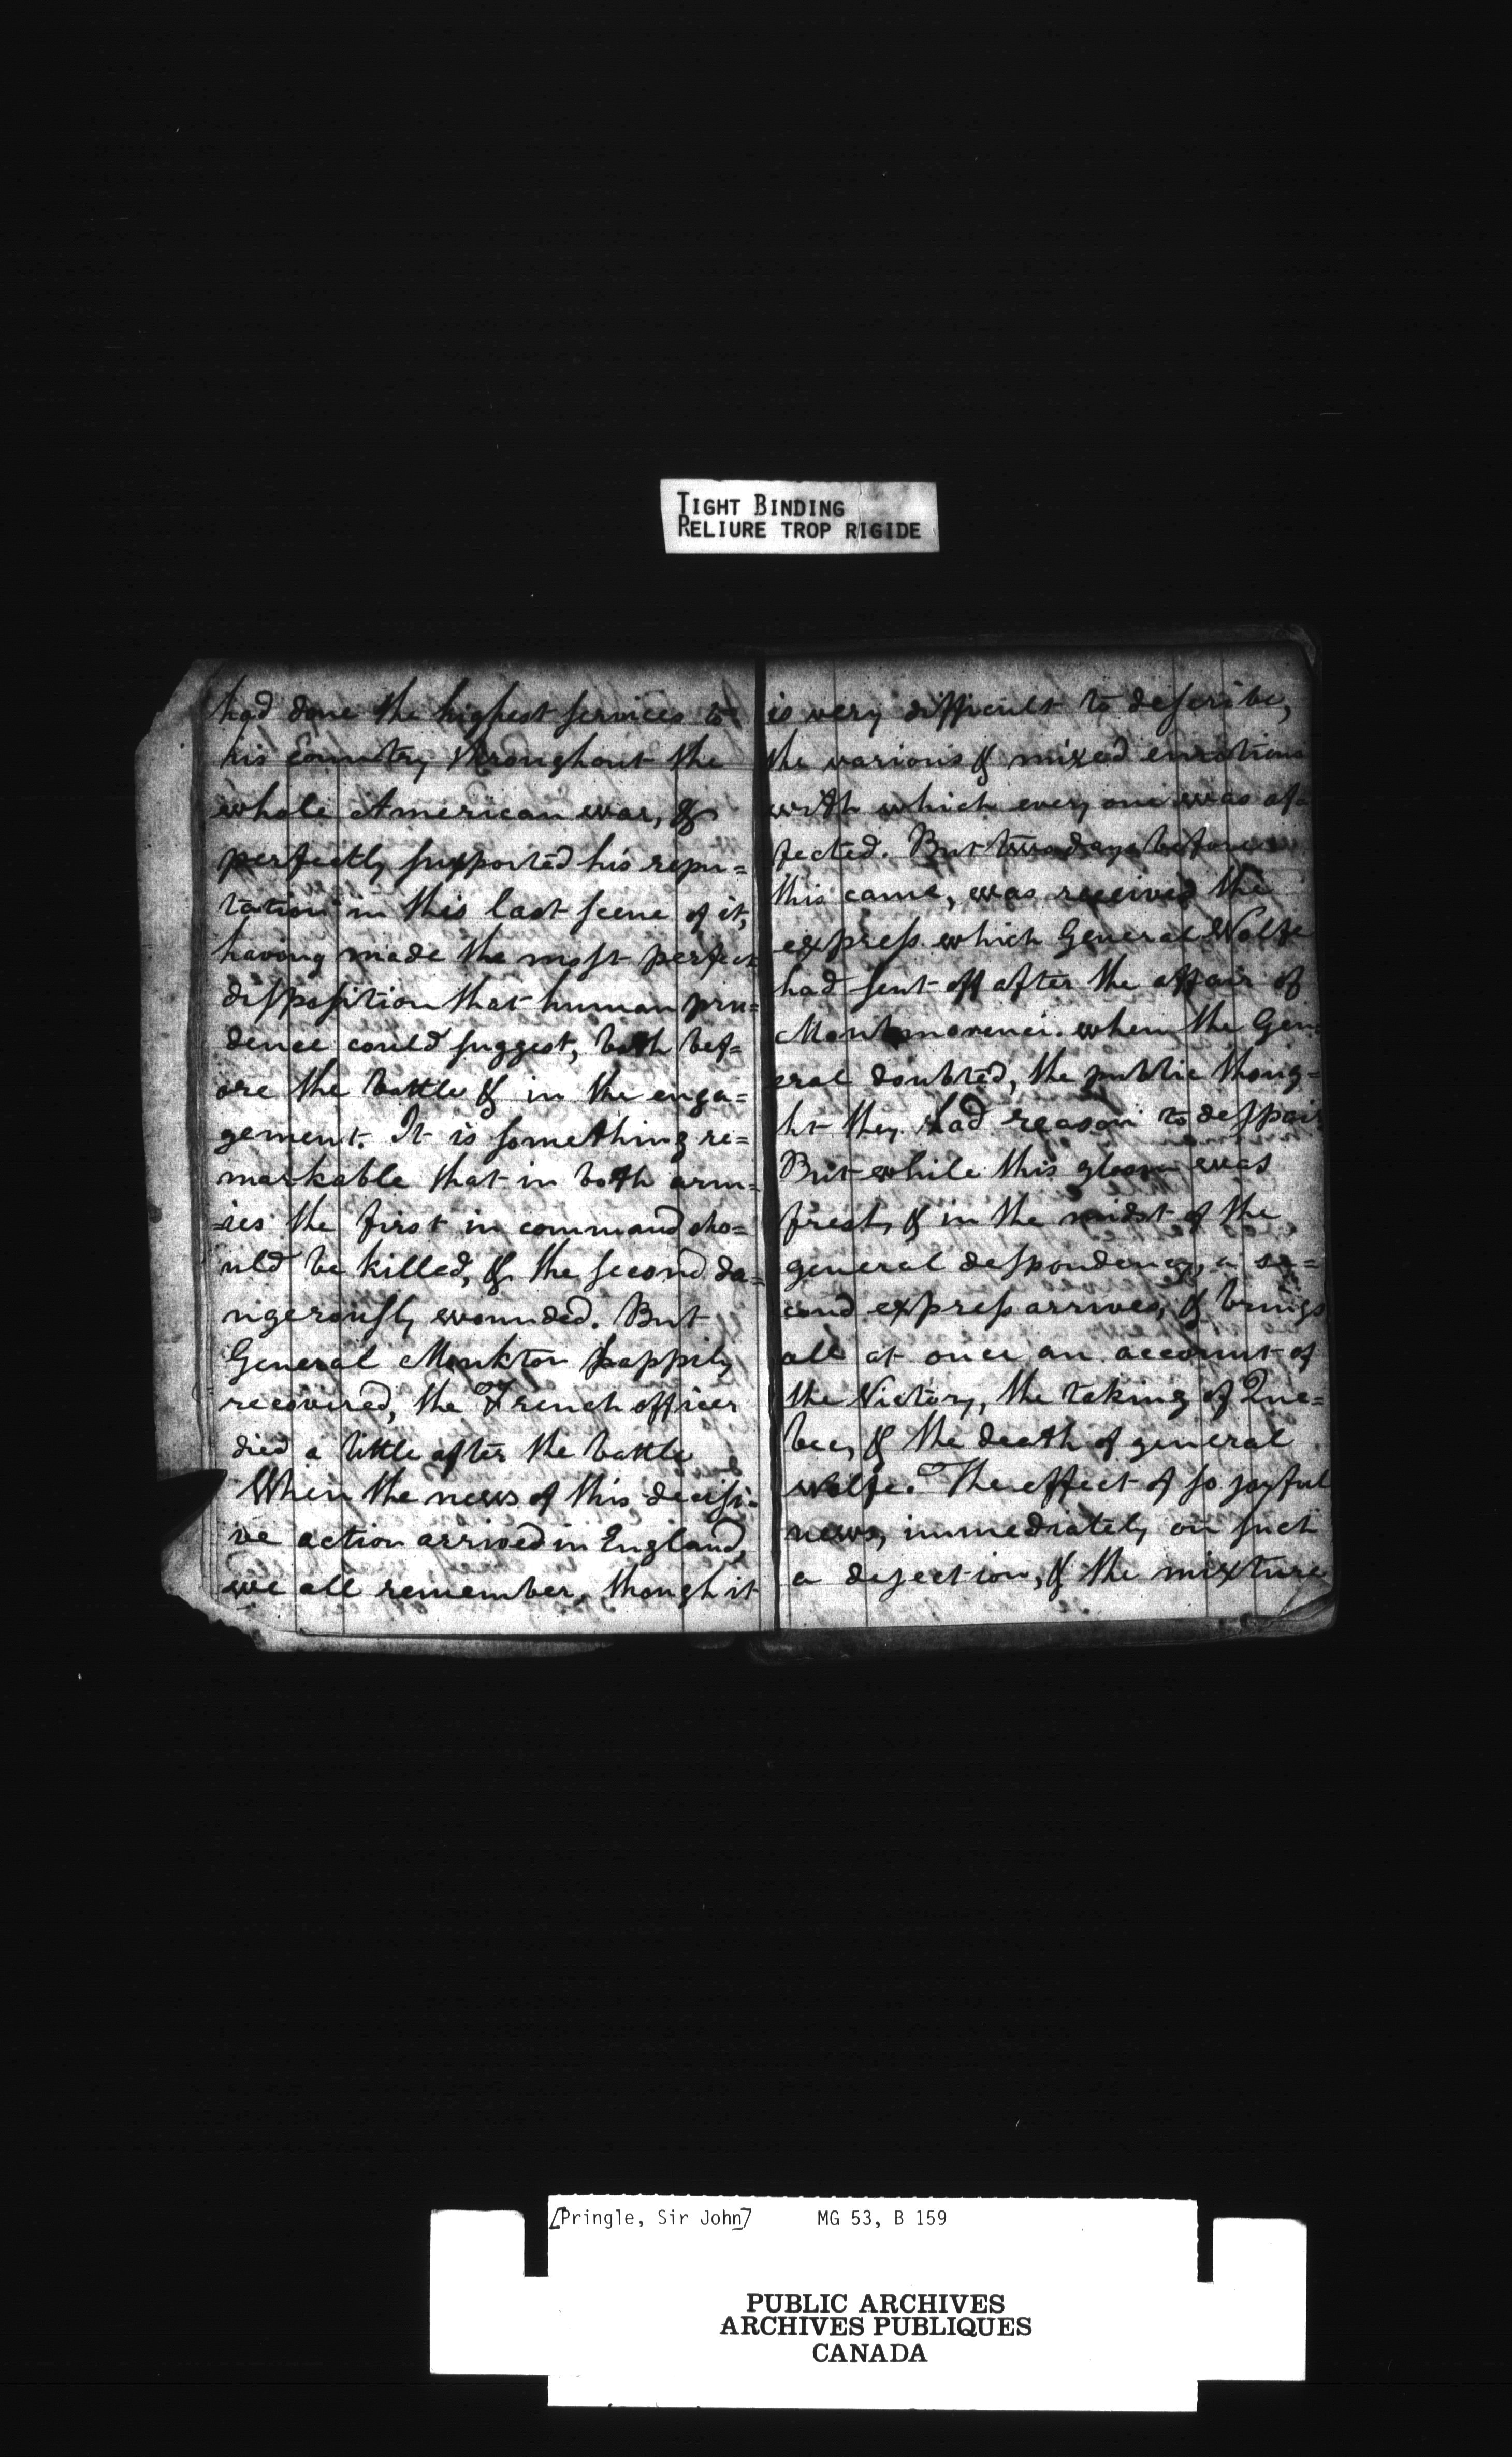 TIGHT BINDING
RELIURE TROP RIGIDE
had done the highest services to
his country throughout the
whole American war, &
perfectly supported his repu=
tation in this last scene of it,
having made the most perfect
dispposition that human pru=
dence could suggest, both bef=
ore the battle & in the enga=
gement. It is something re=
markable that in both arm=
ies the first in command sho=
uld be killed, & the second da=
ngerously wounded. But
General Monkton happily
recovered, the French officer
died a little after the battle
When the news of this decisi=
ve action arrived in England,
we all remember, though it
is very difficult to describe,
the various & mixed emotions
with which every one was af=
fected. But two days before
this came, was received the
express which General Wolfe
had sent off after the affair of
Montmorenci. when the Gen=
eral doubted, the public thoug=
ht they had reason to despair
But while this gloom was
fresh, & in the midst of the
general despondency, a se=
cond express arrives, & brings
all at once an account of
the Victory, the taking of Que=
bec, & the death of general
Wolfe. The effect of so joyful
news, immediately on such
a dejection, & the mixture
[Pringle, Sir John] MG 53, B 159
PUBLIC ARCHIVES
ARCHIVES PUBLIQUES
CANADA